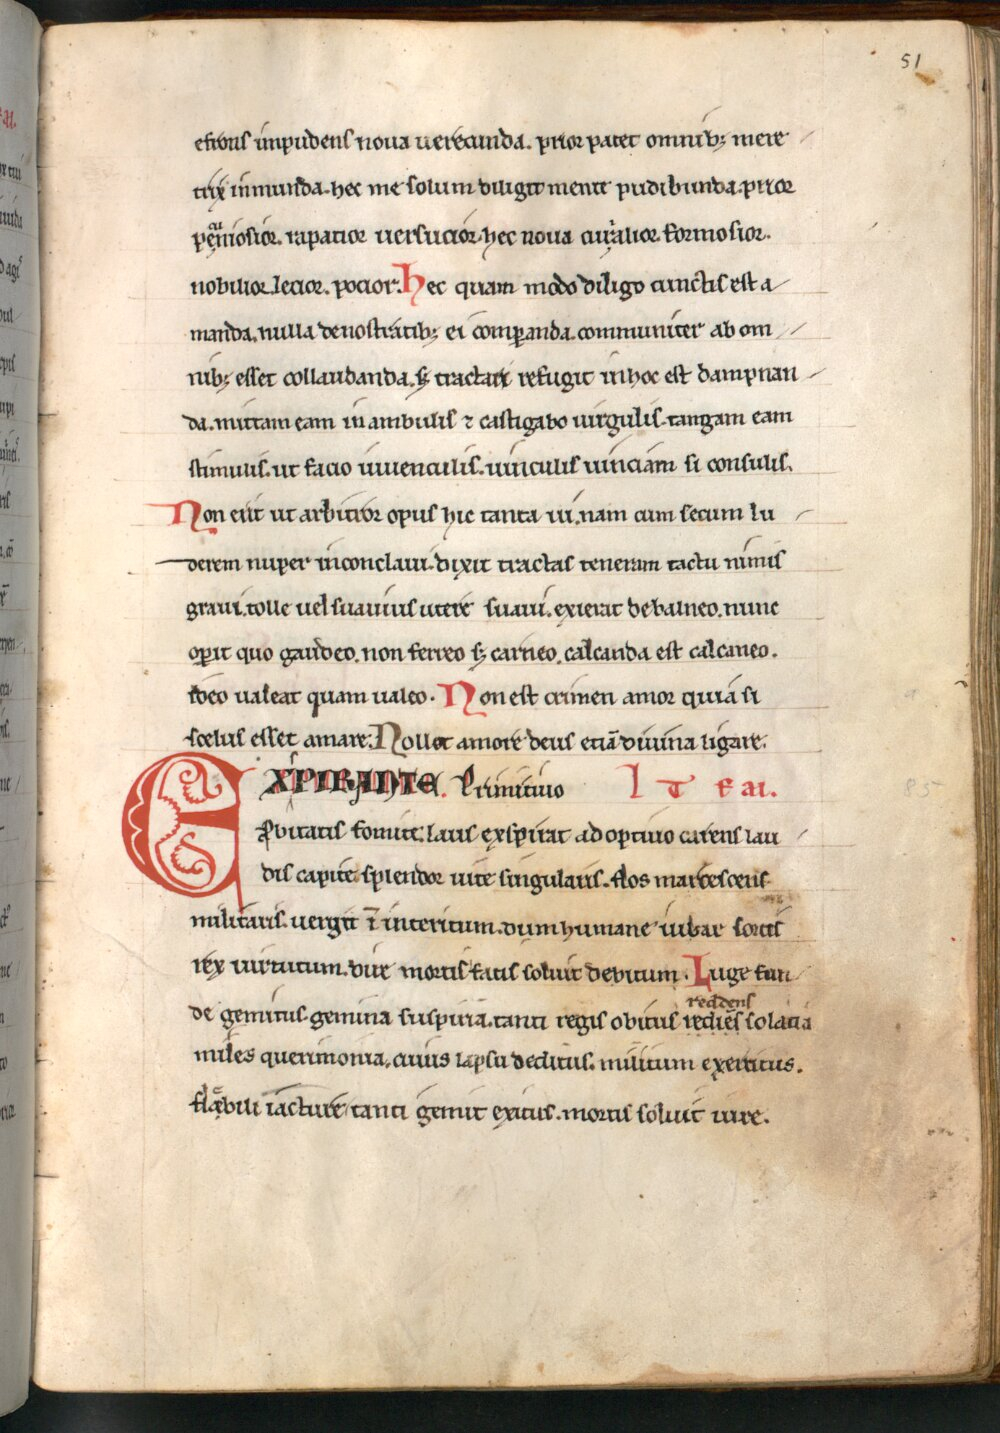 51
efrons inpudens noua uerecunda. prior patet omnib; mere
trix inmunda. hec me solum diligit mente pudibunda. prior
pecuniosior. rapacior uersucior. hec noua curialior formosior.
nobilior lecior. pocior. Hec quam modo diligo cunctis est a
manda. nulla de nostratib; ei comparanda. communiter ab om
nib; esset collaudanda. s; tractari refugit in hoc est dampnan
da. mittam eam in ambulis ⁊ castigabo uirgulis. tangam eam
stimulis. ut facio iuuenculis. uinculis uinciam si consulis.
Non erit ut arbitror opus hic tanta ui. nam cum secum lu
derem nuper in conclaui. dixit tractas teneram tactu nimis
graui. tolle uel suauius utere suaui. exierat de balneo. nunc
operit quo gaudeo. non ferreo s; carneo. calcanda est calcaneo.
ideo ualeat quam ualeo. Non est crimen amor quia si
scelus esset amare. Nollet amore deus etiā diuina ligare.
EXPIRANTE. Primitiuo ITEM.
Probitatis fomite. laus exspirat adoptiuo carens lau
dis capite. splendor uite singularis. flos marcescens
militaris. uergit ī interitum. dum humane iubar sortis
rex uirtutum. dire mortis fatis soluit debitum. Luge fun
reddens
de gemitus. gemina suspiria. tanti regis obitus rediēs solatia
miles querimonia. cuius lapsu deditus. militum exercitus.
flebili iacture tanti gemit exitus. mortis soluit iure.
85